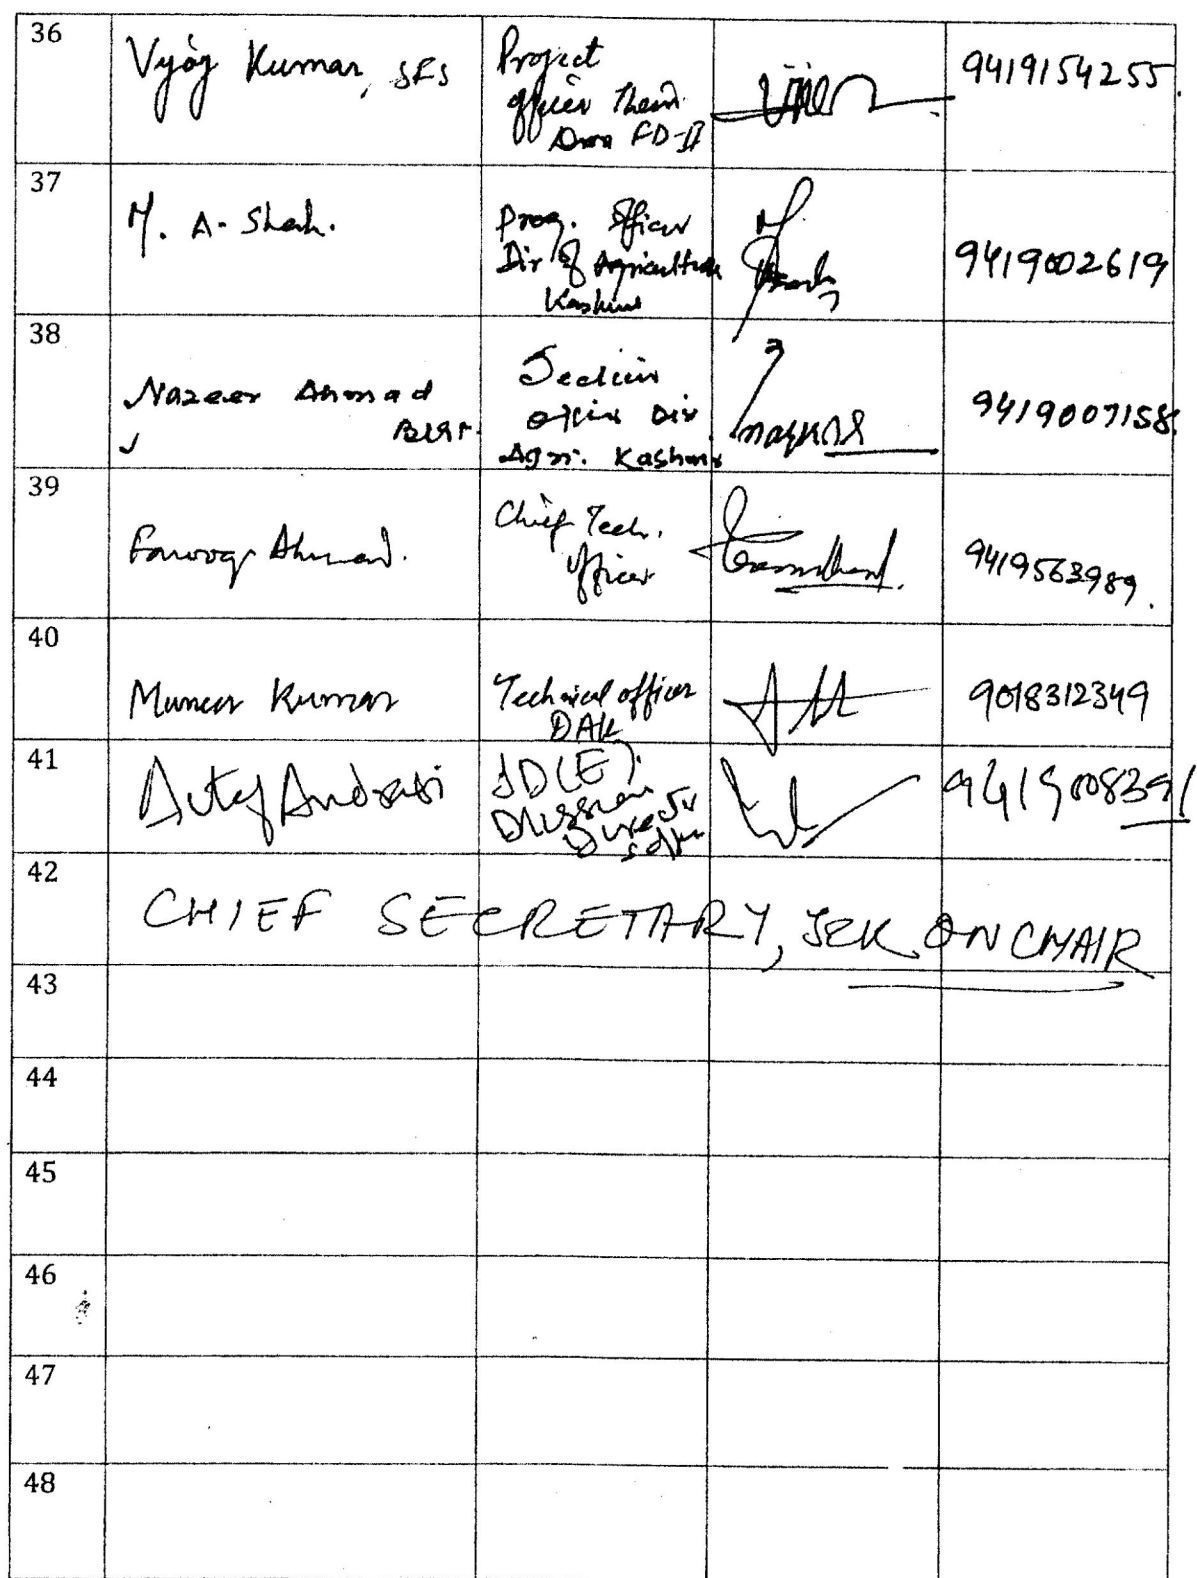 36
Vijay Kumar, SFS
Project
officer
FD-II
9419154255.
37
M. A. Shah.
Prog. Officer
Dir of Agriculture
Kashmir
9419002619
38
Nazeer Ahmad
Bhat.
Section
officer Div
Agri. Kashmir
9419007158
39
Farooq Ahmad.
Chief Tech.
Officer
9419563989.
40
Muneer Kumar
Technical officer
DAK
9018312349
41
Andrabi
JD(E).
9419008391
42
CHIEF SECRETARY, J&K ON CHAIR
43
44
45
46
47
48